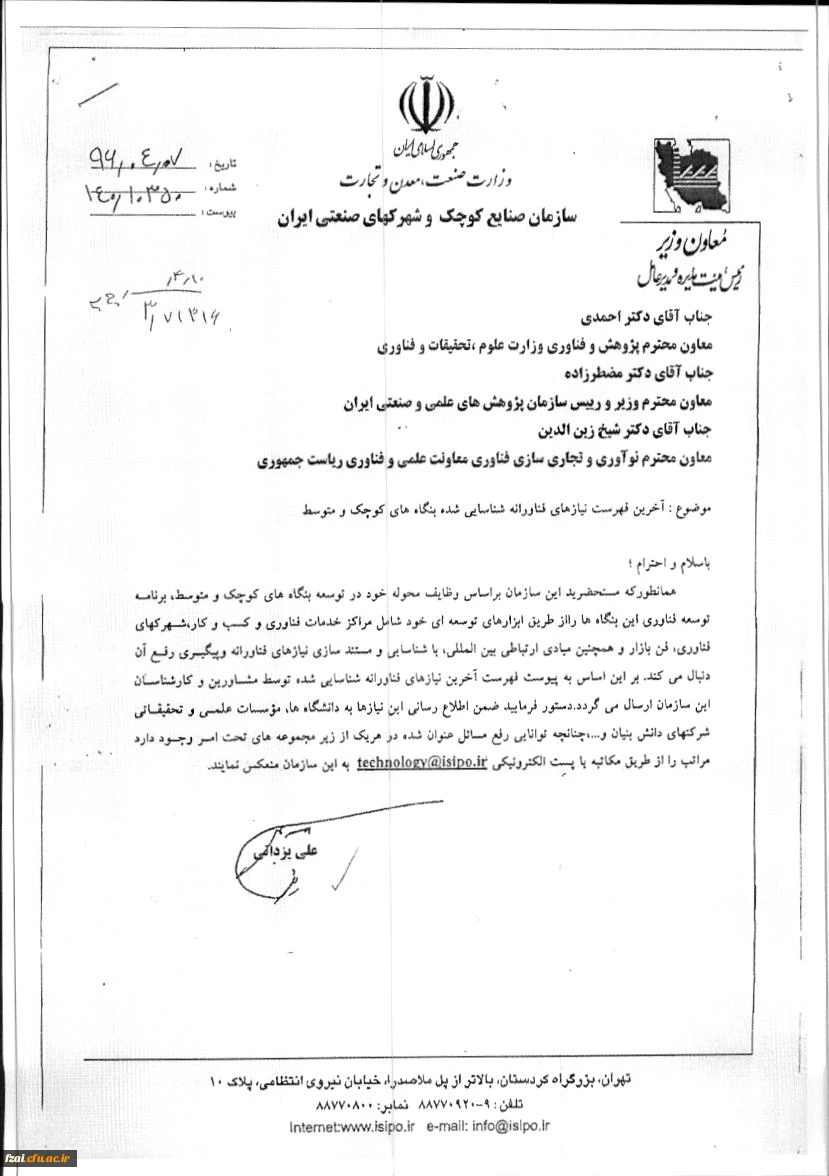 جمهوری اسلامی ایران
وزارت صنعت، معدن و تجارت
سازمان صنایع کوچک و شهرکهای صنعتی ایران
تاریخ : ۹۶،۰۴،۰۷
شماره : ۱۴۰،۱۰۳۵۰
پیوست :
معاون وزیر
رئیس هیئت مدیره و مدیرعامل
جناب آقای دکتر احمدی
معاون محترم پژوهش و فناوری وزارت علوم ،تحقیقات و فناوری
جناب آقای دکتر مضطرزاده
معاون محترم وزیر و رییس سازمان پژوهش های علمی و صنعتی ایران
جناب آقای دکتر شیخ زین الدین
معاون محترم نوآوری و تجاری سازی فناوری معاونت علمی و فناوری ریاست جمهوری
موضوع : آخرین فهرست نیازهای فناورانه شناسایی شده بنگاه های کوچک و متوسط
باسلام و احترام ؛
همانطورکه مستحضرید این سازمان براساس وظایف محوله خود در توسعه بنگاه های کوچک و متوسط، برنامه
توسعه فناوری این بنگاه ها رااز طریق ابزارهای توسعه ای خود شامل مراکز خدمات فناوری و کسب و کار،شهرکهای
فناوری، فن بازار و همچنین مبادی ارتباطی بین المللی، با شناسایی و مستند سازی نیازهای فناورانه وپیگیری رفع آن
دنبال می کند. بر این اساس به پیوست فهرست آخرین نیازهای فناورانه شناسایی شده توسط مشاورین و کارشناسان
این سازمان ارسال می گردد.دستور فرمایید ضمن اطلاع رسانی این نیازها به دانشگاه ها، مؤسسات علمی و تحقیقاتی
شرکتهای دانش بنیان و...،چنانچه توانایی رفع مسائل عنوان شده در هریک از زیر مجموعه های تحت امر وجود دارد
مراتب را از طریق مکاتبه یا پست الکترونیکی technology@isipo.ir به این سازمان منعکس نمایند.
علی یزدانی
تهران، بزرگراه کردستان، بالاتر از پل ملاصدرا، خیابان نیروی انتظامی، پلاک ۱۰
تلفن : ۹-۸۸۷۷۰۹۲۰ نمابر: ۸۸۷۷۰۸۰۰
Internet:www.isipo.ir e-mail: info@isipo.ir
fzai.cfu.ac.ir